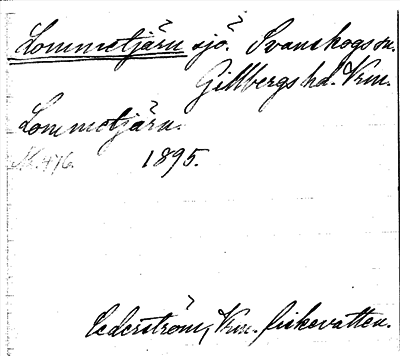 Lommetjärn sjö? Svanskogs sn.
Gillbergs hd. Vrm.
Lommetjärn.
1895.
Cederström, Vrm. fiskevatten.